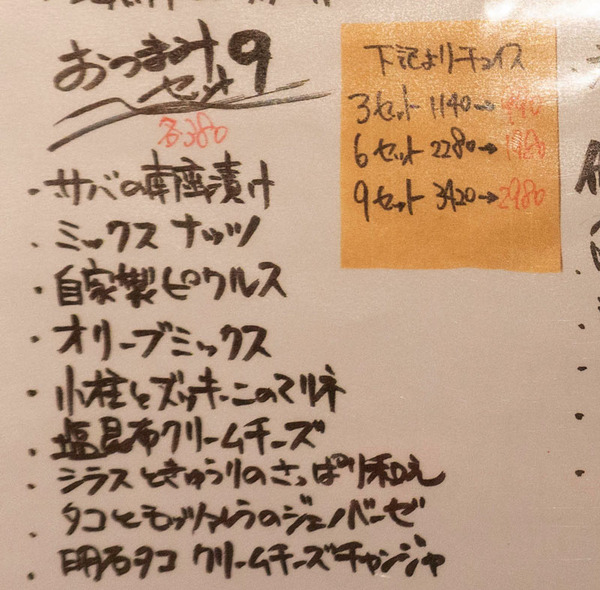 おつまみ9
セット
380
・サバの庫座漬け
・ミックスナッツ
・自家製ピクルス
・オリーブミックス
・小柱とズッキーニのマリネ
・塩昆布クリームチーズ
・シラスときゅうりのさっぱり和え
・タコとモッツァレラのジェノベーゼ
・明石タコ クリームチーズチャンジャ
下記よりチョイス
3セット 1140→
6セット 2280→
9セット 3420→2980